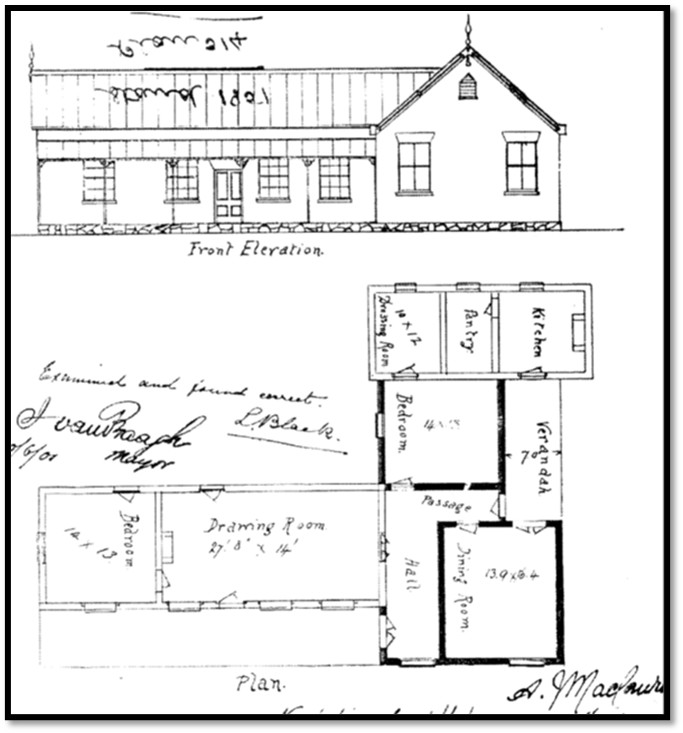 Plan 314
Stand 1201
Front Elevation.
Dressing Room
10 x 12
Pantry
Kitchen
Examined and found correct.
L. Black.
Mayor
Bedroom.
14 x 13
Verandah
7'0"
Passage
Bedroom
14 x 13
Drawing Room
27'.8" x 14'
Hall
Dining Room.
13.9 x 18.4
Plan.